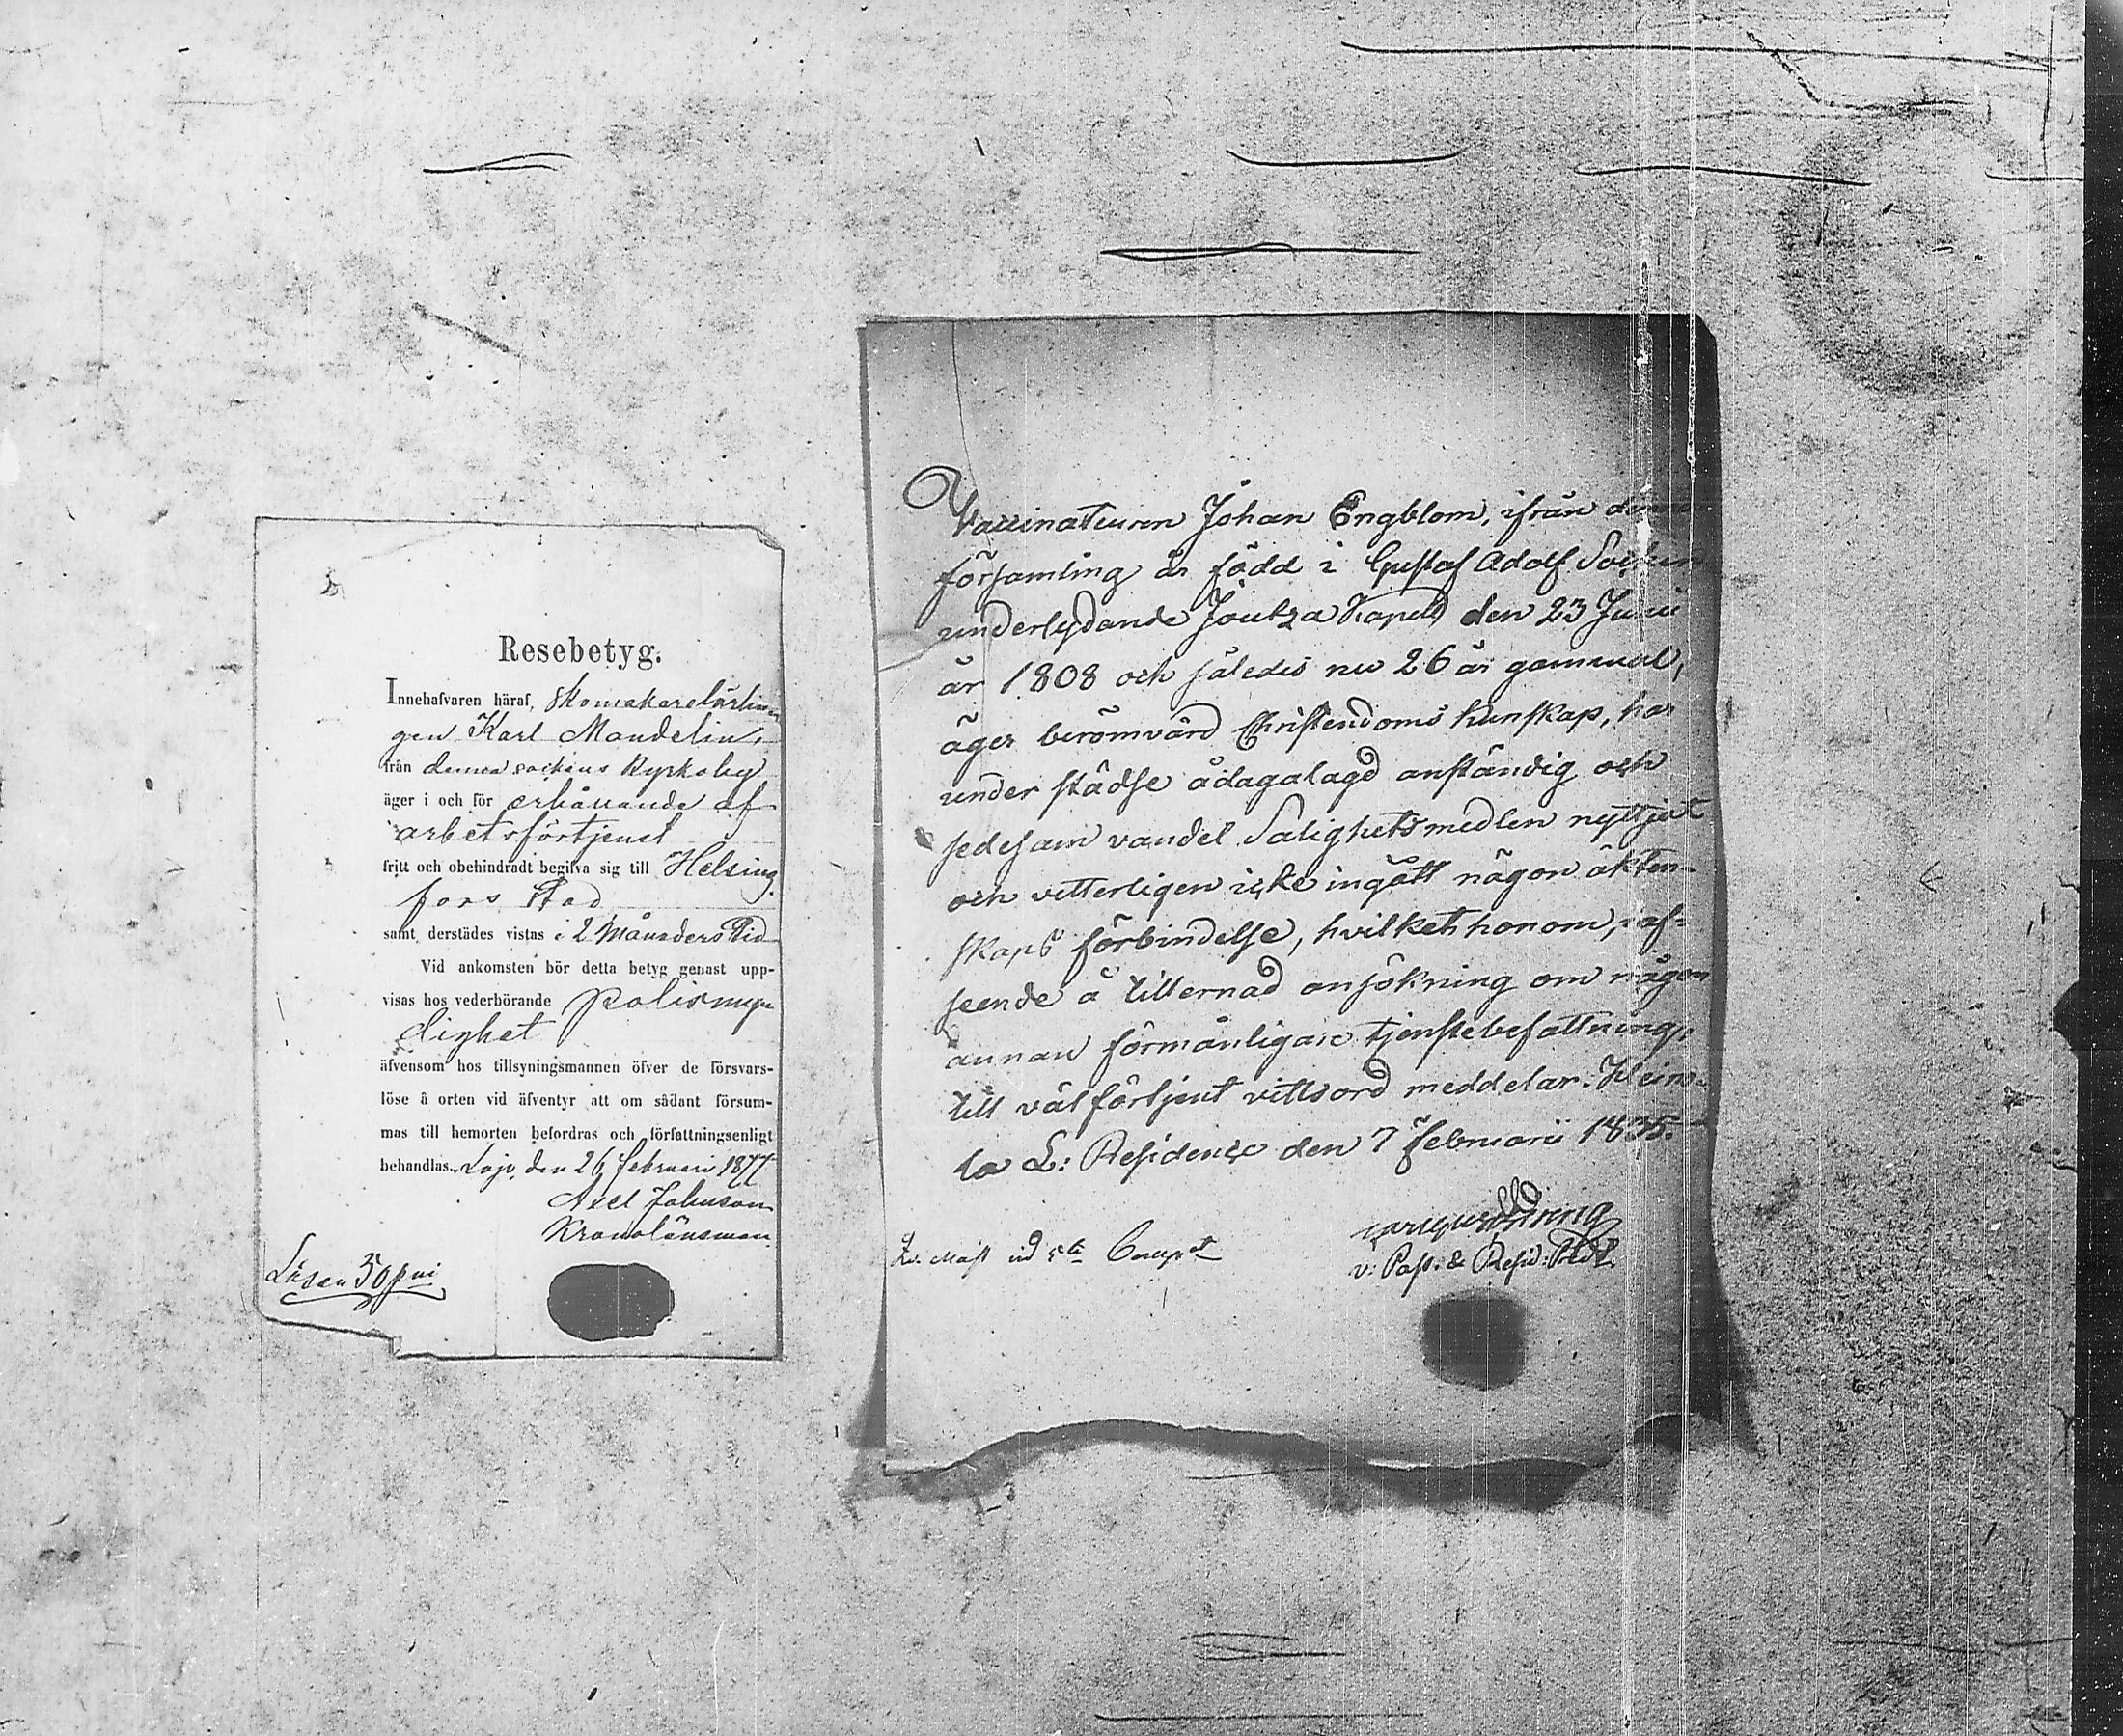 Resebetyg.
Innehafvaren häraf, Skomakarelärlin-
gen Karl Mandelin,
från denna sockens Kyrkoby
äger i och för erhållande af
arbetsförtjenst
fritt och obehindradt begifva sig till Helsing-
fors Stad
samt derstädes vistas i 2 Månaders tid
Vid ankomsten bör detta betyg genast upp-
visas hos vederbörande polismyn
dighet
äfvensom hos tillsyningsmannen öfver de försvars-
löse å orten vid äfventyr att om sådant försum-
mas till hemorten befordras och författningsenligt
behandlas. Lojo, den 26 februari 1877
Axel Johnson
Kronolänsman.
Lösen 50 pni
Vaccinateuren Johan Engblom, ifrån denna
församling är född i Gustaf Adolf Socken
underlydande Joutza Kapell den 23 Junii
år 1808 och således nu 26 år gammal,
äger berömvärd Christendoms kunskap, har
under städse ådagalagd anständig och
sedesam vandel Salighetsmedlen nyttjat
och vetterligen icke ingått någon äkten-
skaps förbindelse, hvilket honom, i af-
seende å tillernad ansökning om någon
annan förmånligare tjenstebefattning,
till välförtjent vittsord meddelar. Heino-
la L: Residence den 7 februarii 1835.
v: Past: & Resid: Pred:
vid 5te Comp:t